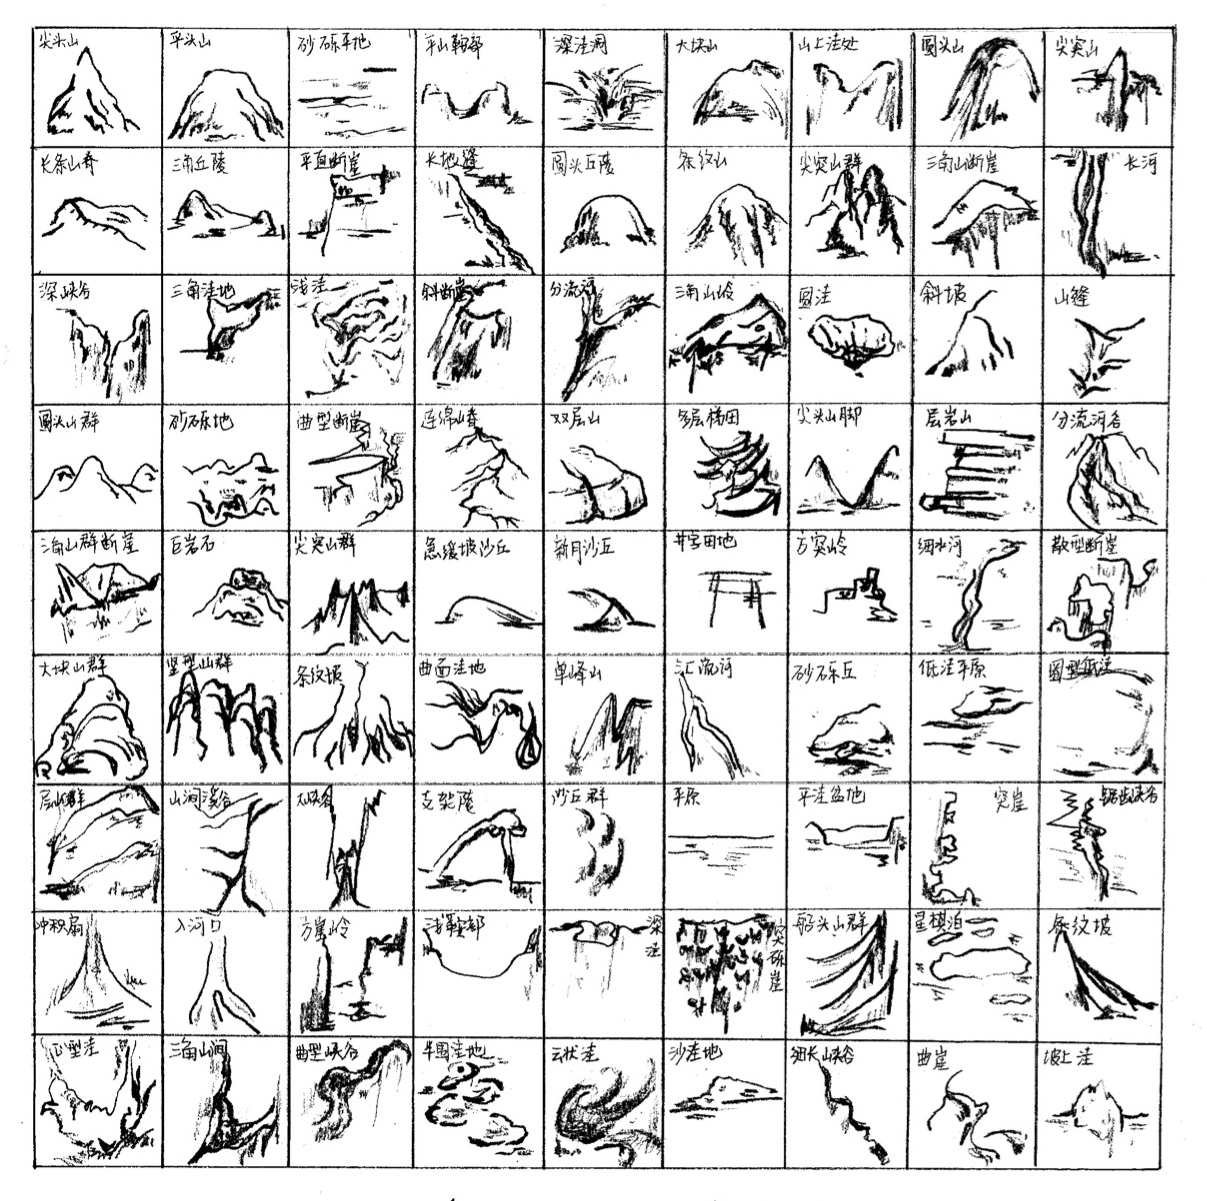 尖头山
平头山
砂砾平地
平山鞍部
深洼洞
大块山
山上洼处
圆头山
尖突山
长条山脊
三角丘陵
平直断崖
长地缝
圆头丘陵
条纹山
尖突山群
三角山断崖
长河
深峡谷
三角洼地
浅洼
斜断崖
分流河
三角山岭
圆洼
斜坡
山缝
圆头山群
砂砾地
曲型断崖
连绵山脊
双层山
多层梯田
尖头山脚
层岩山
分流河谷
三角山群断崖
巨岩石
尖突山群
急缓坡沙丘
新月沙丘
井字田地
方突岭
细水河
散型断崖
大块山群
竖型山群
条纹坡
曲面洼地
单峰山
汇流河
砂砾丘
低洼平原
圆型低洼
层山群
山涧溪谷
大峡谷
支架陵
沙丘群
平原
平洼盆地
突崖
锯齿峡谷
冲积扇
入河口
方崖岭
浅鞍部
深洼
突砾崖
船头山群
星棋泊
条纹坡
正型洼
三角山涧
曲型峡谷
半圆洼地
云状洼
沙洼地
细长山峡谷
曲崖
坡上洼